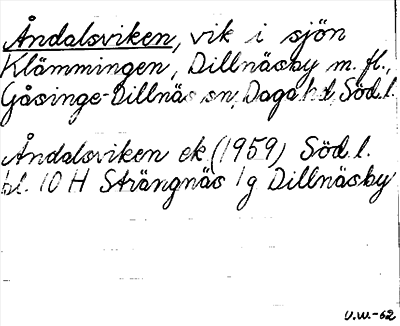 Åndalsviken, vik i sjön
Klämmingen, Dillnäsby m. fl.,
Gåsinge-Dillnäs sn, Daga hd, Söd. l.
Åndalsviken ek (1959) Söd. l.
bl. 10 H Strängnäs 1g Dillnäsby
U.W.-62